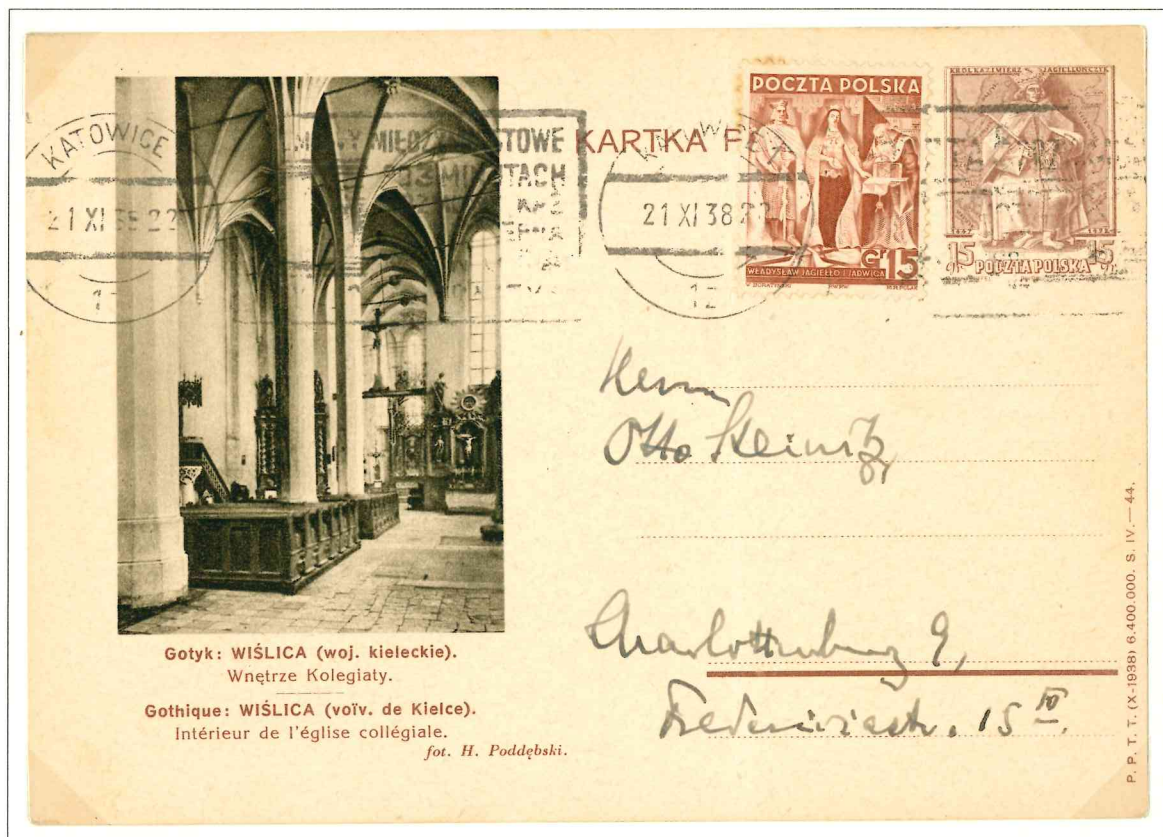 KATOWICE
21 XI 38 22
MIĘDZY
KARTKA
21 XI 38
POCZTA POLSKA
WŁADYSŁAW JAGIEŁŁO I JADWIGA
Gr 15
KRÓL KAZIMIERZ JAGIELLOŃCZYK
15 POCZTA POLSKA 15
Herrn
Otto Steinitz
Charlottenburg 9,
Fredericiastr. 15 IV.
Gotyk: WIŚLICA (woj. kieleckie).
Wnętrze Kolegiaty.
Gothique: WIŚLICA (voïv. de Kielce).
Intérieur de l'église collégiale.
fot. H. Poddębski.
P. P. T. T. (X-1938) 6.400.000. S. IV. — 44.